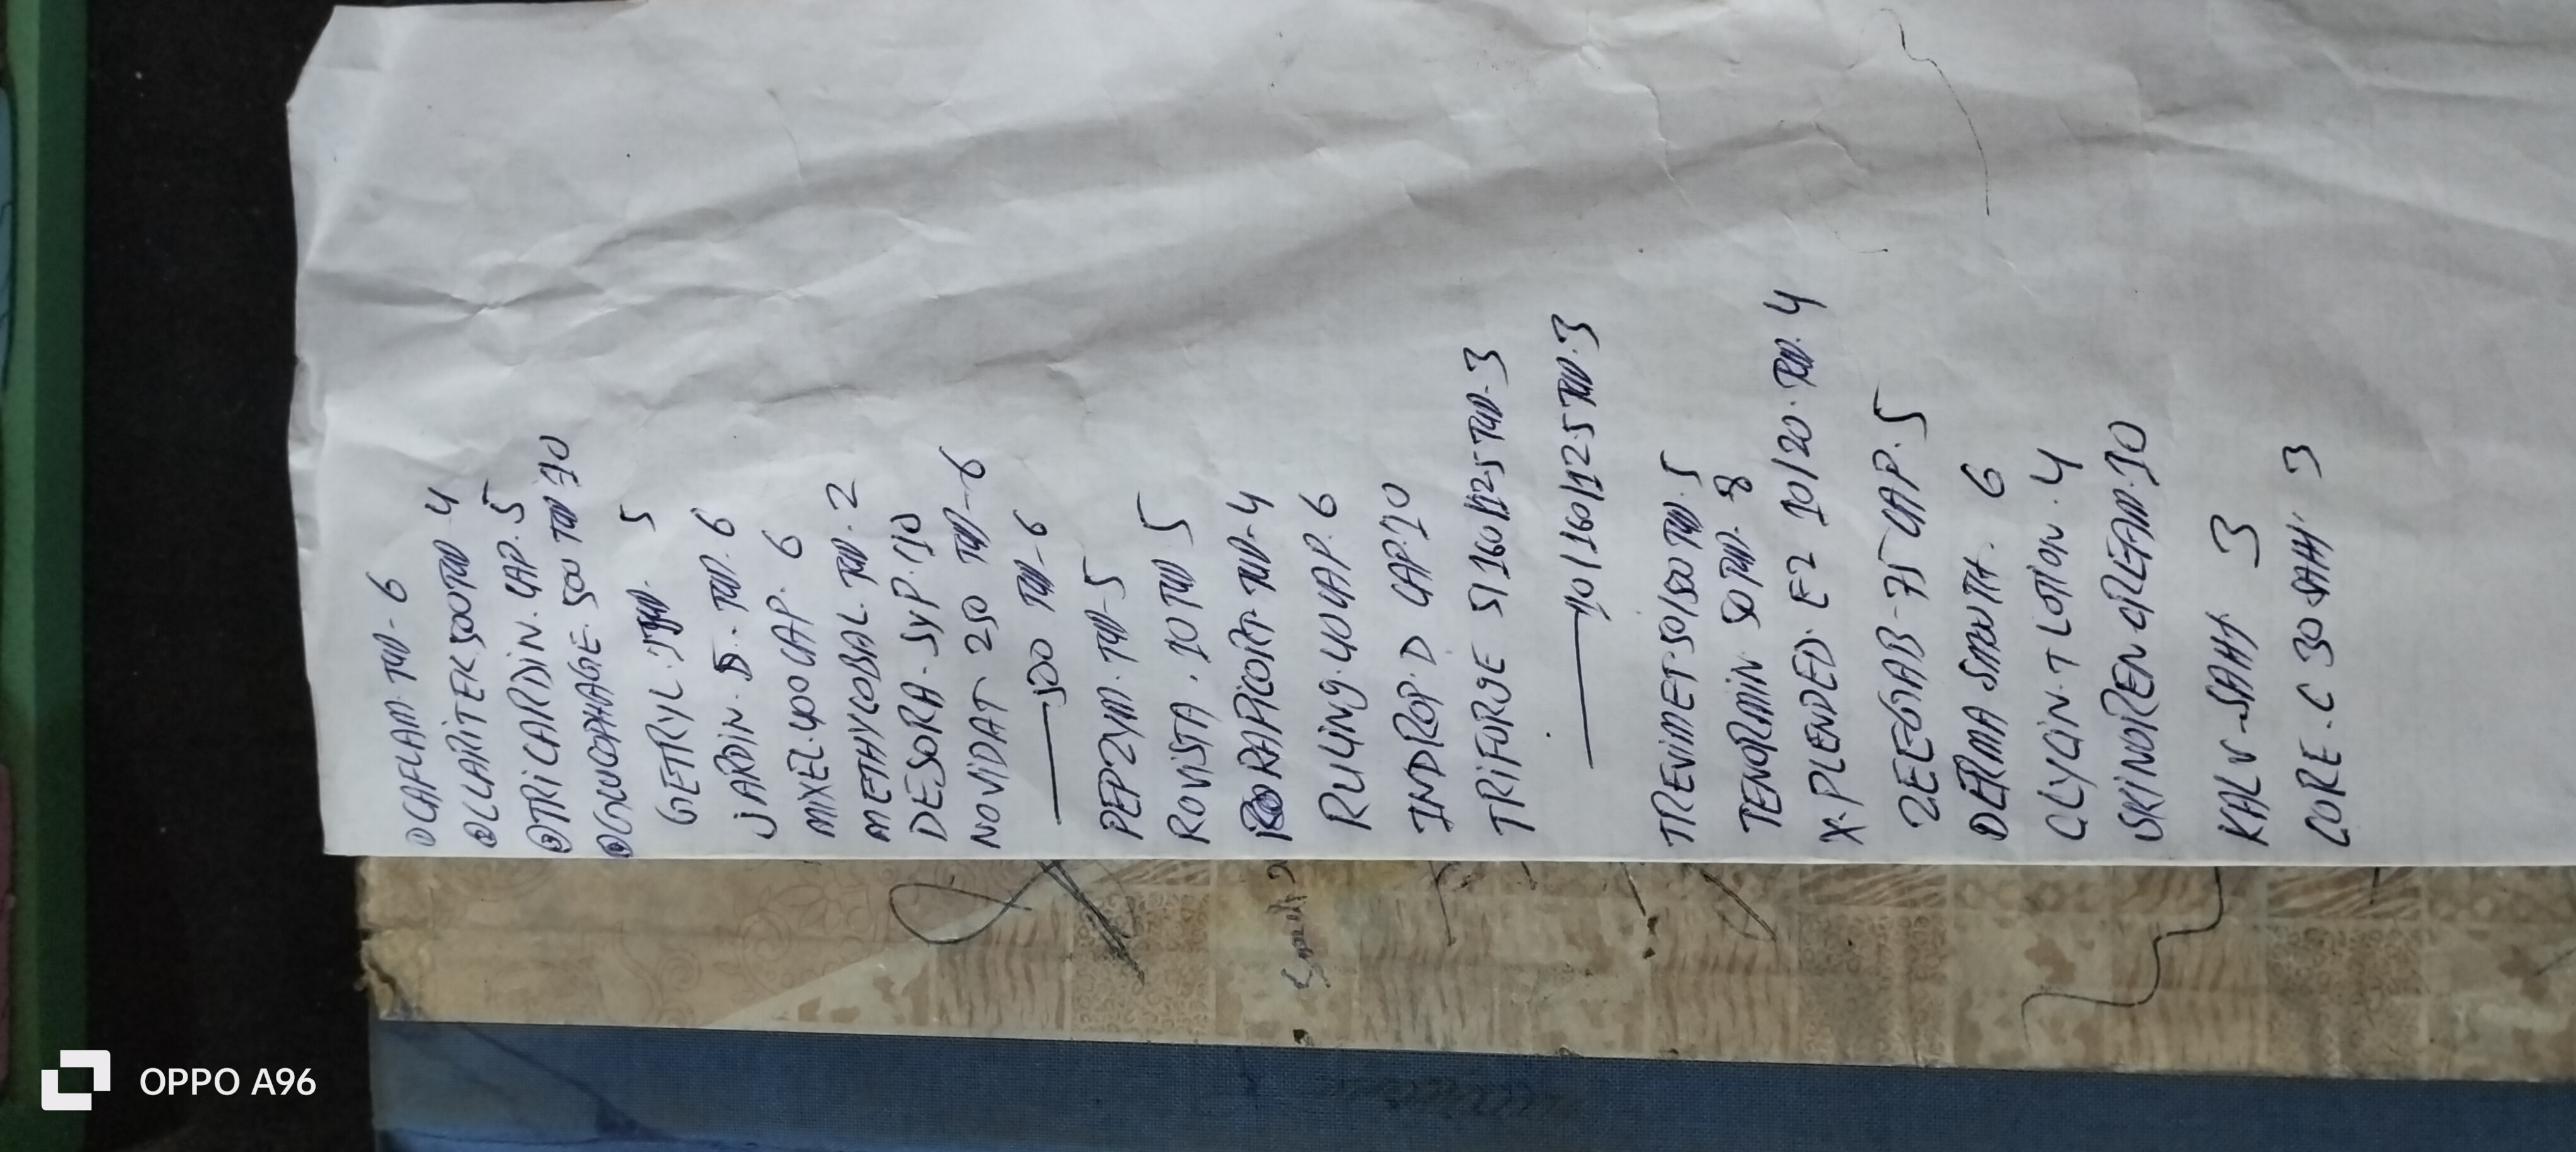 ① CAFLAM. TAB - 6
② CLARITEK 500 TAB 4
③ TRICARDIN. CAP. 5
④ GLUCOPHAGE. 500 TAB 10
GETRYL. TAB. 5
JARDIN. D. TAB. 6
MIXEL. 400 CAP. 6
METHYCOBAL. TAB. 2
DESORA - SYP. 10
NOVIDAT 250 TAB - 6
—— 500 TAB - 6
PEPZYM. TAB - 5
ROVISTA. 10 TAB 5
RAPICORT. TAB - 4
RULING. 40 CAP. 6
INDROP. D CAP. 10
TRIFORGE 5/160/12.5 TAB - 3
—— 10/160/12.5 TAB. 3
TREVIMET. 50/500 TAB. 5
TENORMIN 50 TAB. 8
X. PLENDED. EZ 10/20. TAB. 4
ZEEGAB - 75 CAP. 5
DERMA SMOOTH. 6
CLYCIN. T LOTION. 4
SKINOREN CREAM. 10
KALV - SAHY 3
CORE. C 30 SAHY. 3
OPPO A96